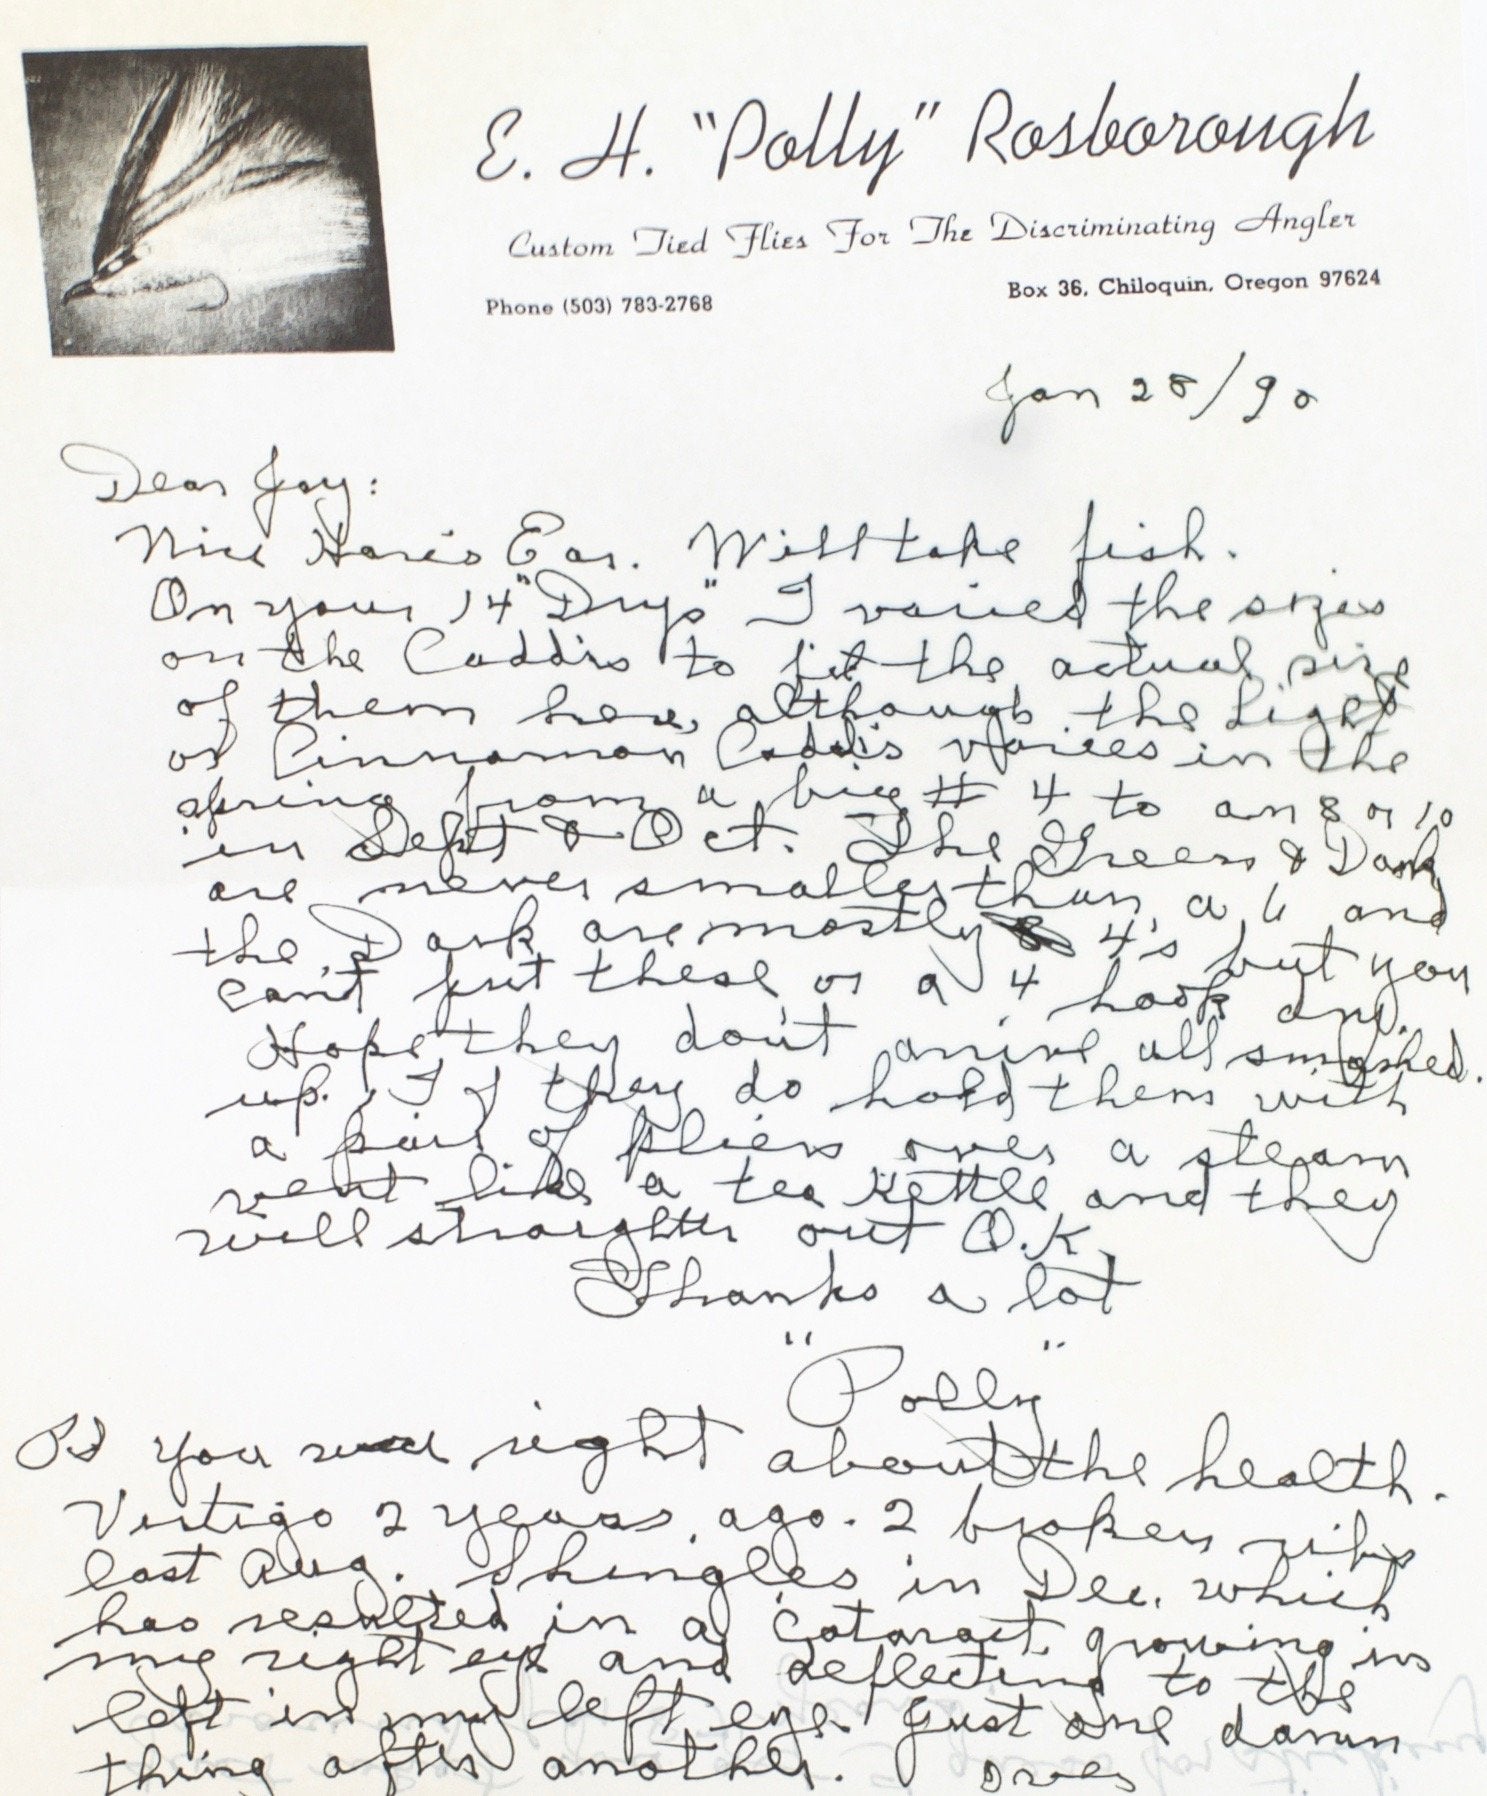 E. H. "Polly" Rosborough
Custom Tied Flies For The Discriminating Angler
Phone (503) 783-2768
Box 36, Chiloquin, Oregon 97624
Jan 28/90
Dear Jay:
Nice Hare's Ear. Will take fish.
On your 14 "Drys" I varied the sizes
on the Caddis to fit the actual size
of them here, although the Light
or Cinnamon Caddis varies in the
spring from a big # 4 to an 8 or 10
in Sept & Oct. The Green & Dark
are never smaller than a 6 and
the Dark are mostly 4's but you
can't put these on a 4 hook
Hope they don't arrive all smashed
up. If they do hold them with
a pair of pliers over a steam
vent like a tea kettle and they
will straighten out O.K.
Thanks a lot
"Polly"
PS You right about the health.
Vertigo 2 years ago. 2 broken ribs
last Aug. Shingles in Dec. which
has resulted in a cataract growing in
my right eye and deflecting to the
left in my left eye. Just one damn
thing after another.
Over